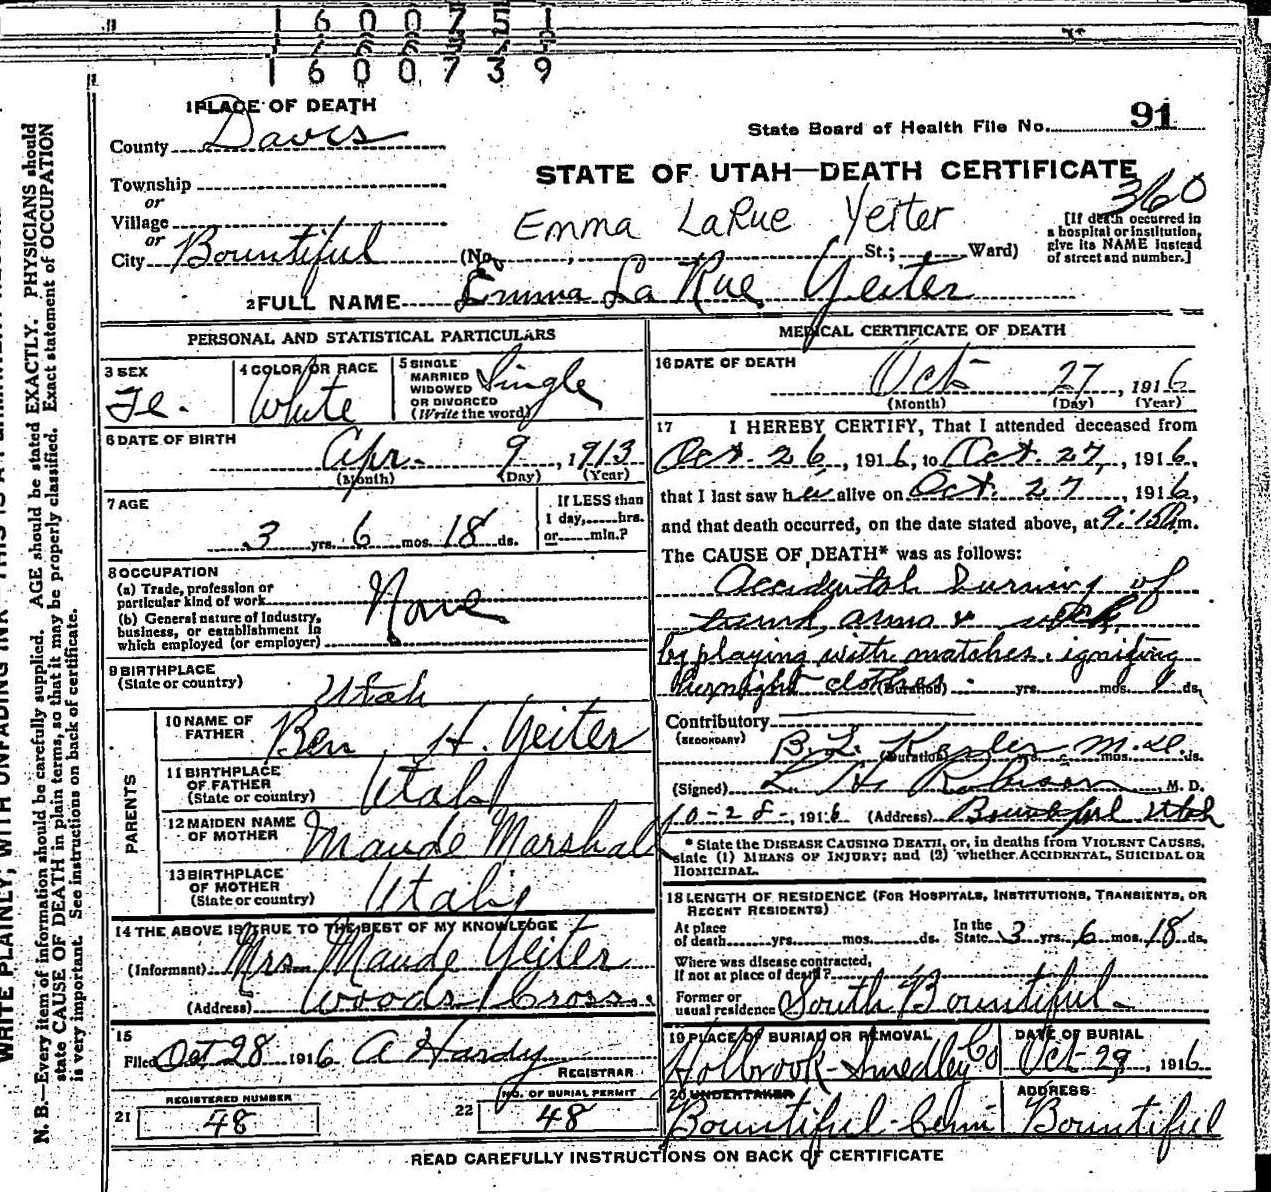 1 6 0 0 7 5 1
1 6 0 0 7 3 9
1 PLACE OF DEATH
County Davis
Township
or
Village
or
City Bountiful
State Board of Health File No. 91
STATE OF UTAH—DEATH CERTIFICATE
360
Emma LaRue Yeiter
(No. , St.; Ward)
[If death occurred in
a hospital or institution,
give its NAME instead
of street and number.]
2 FULL NAME Emma La Rue Yeiter
PERSONAL AND STATISTICAL PARTICULARS
3 SEX
Fe.
4 COLOR OR RACE
White
5 SINGLE
MARRIED
WIDOWED
OR DIVORCED
(Write the word)
Single
6 DATE OF BIRTH
Apr. 9, 1913
(Month) (Day) (Year)
7 AGE
3 yrs. 6 mos. 18 ds.
If LESS than
1 day, hrs.
or min.?
8 OCCUPATION
(a) Trade, profession or
particular kind of work
(b) General nature of Industry,
business, or establishment in
which employed (or employer)
None
9 BIRTHPLACE
(State or country)
Utah
PARENTS
10 NAME OF
FATHER
Ben. H. Yeiter
11 BIRTHPLACE
OF FATHER
(State or country)
Utah
12 MAIDEN NAME
OF MOTHER
Maude Marshall
13 BIRTHPLACE
OF MOTHER
(State or country)
Utah
14 THE ABOVE IS TRUE TO THE BEST OF MY KNOWLEDGE
(Informant) Mrs. Maude Yeiter
(Address) Woods Cross.
15
Filed Oct 28 1916 A Hardy
REGISTRAR
21
REGISTERED NUMBER
48
22
NO. OF BURIAL PERMIT
48
MEDICAL CERTIFICATE OF DEATH
16 DATE OF DEATH
Oct 27, 1916
(Month) (Day) (Year)
17 I HEREBY CERTIFY, That I attended deceased from
Oct. 26, 1916, to Oct. 27, 1916,
that I last saw her alive on Oct. 27, 1916,
and that death occurred, on the date stated above, at 9:15 m.
The CAUSE OF DEATH* was as follows:
Accidental burning of
arms &
by playing with matches. igniting
her night clothes
(Duration) yrs. mos. 1 ds.
Contributory
(SECONDARY)
B. L. M.D.
(Duration) yrs. mos. ds.
(Signed) L. H. Robinson, M. D.
10-28-, 1916 (Address) Bountiful Utah
* State the DISEASE CAUSING DEATH, or, in deaths from VIOLENT CAUSES,
state (1) MEANS OF INJURY; and (2) whether ACCIDENTAL, SUICIDAL OR
HOMICIDAL.
18 LENGTH OF RESIDENCE (FOR HOSPITALS, INSTITUTIONS, TRANSIENTS, OR
RECENT RESIDENTS)
At place
of death yrs. mos. ds.
In the
State 3 yrs. 6 mos. 18 ds.
Where was disease contracted,
if not at place of death?
Former or
usual residence South Bountiful
19 PLACE OF BURIAL OR REMOVAL
Holbrook-Smedley Co
DATE OF BURIAL
Oct 29, 1916
20 UNDERTAKER
Bountiful Cem
ADDRESS
Bountiful
READ CAREFULLY INSTRUCTIONS ON BACK OF CERTIFICATE
N. B.—Every item of information should be carefully supplied. AGE should be stated EXACTLY. PHYSICIANS should
state CAUSE OF DEATH in plain terms, so that it may be properly classified. Exact statement of OCCUPATION
is very important. See instructions on back of certificate.
WRITE PLAINLY, WITH UNFADING INK